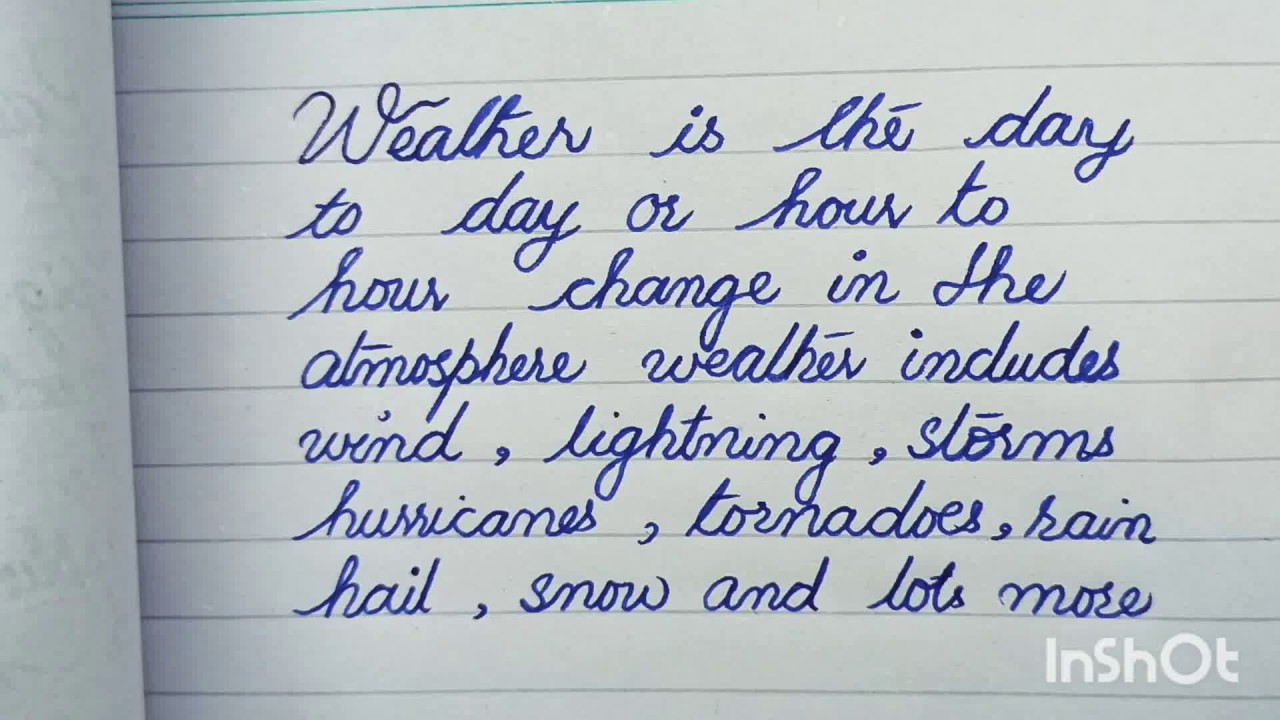 Weather is the day
to day or hour to
hour change in the
atmosphere weather includes
wind, lightning, storms
hurricanes, tornadoes, rain
hail, snow and lots more
InShOt